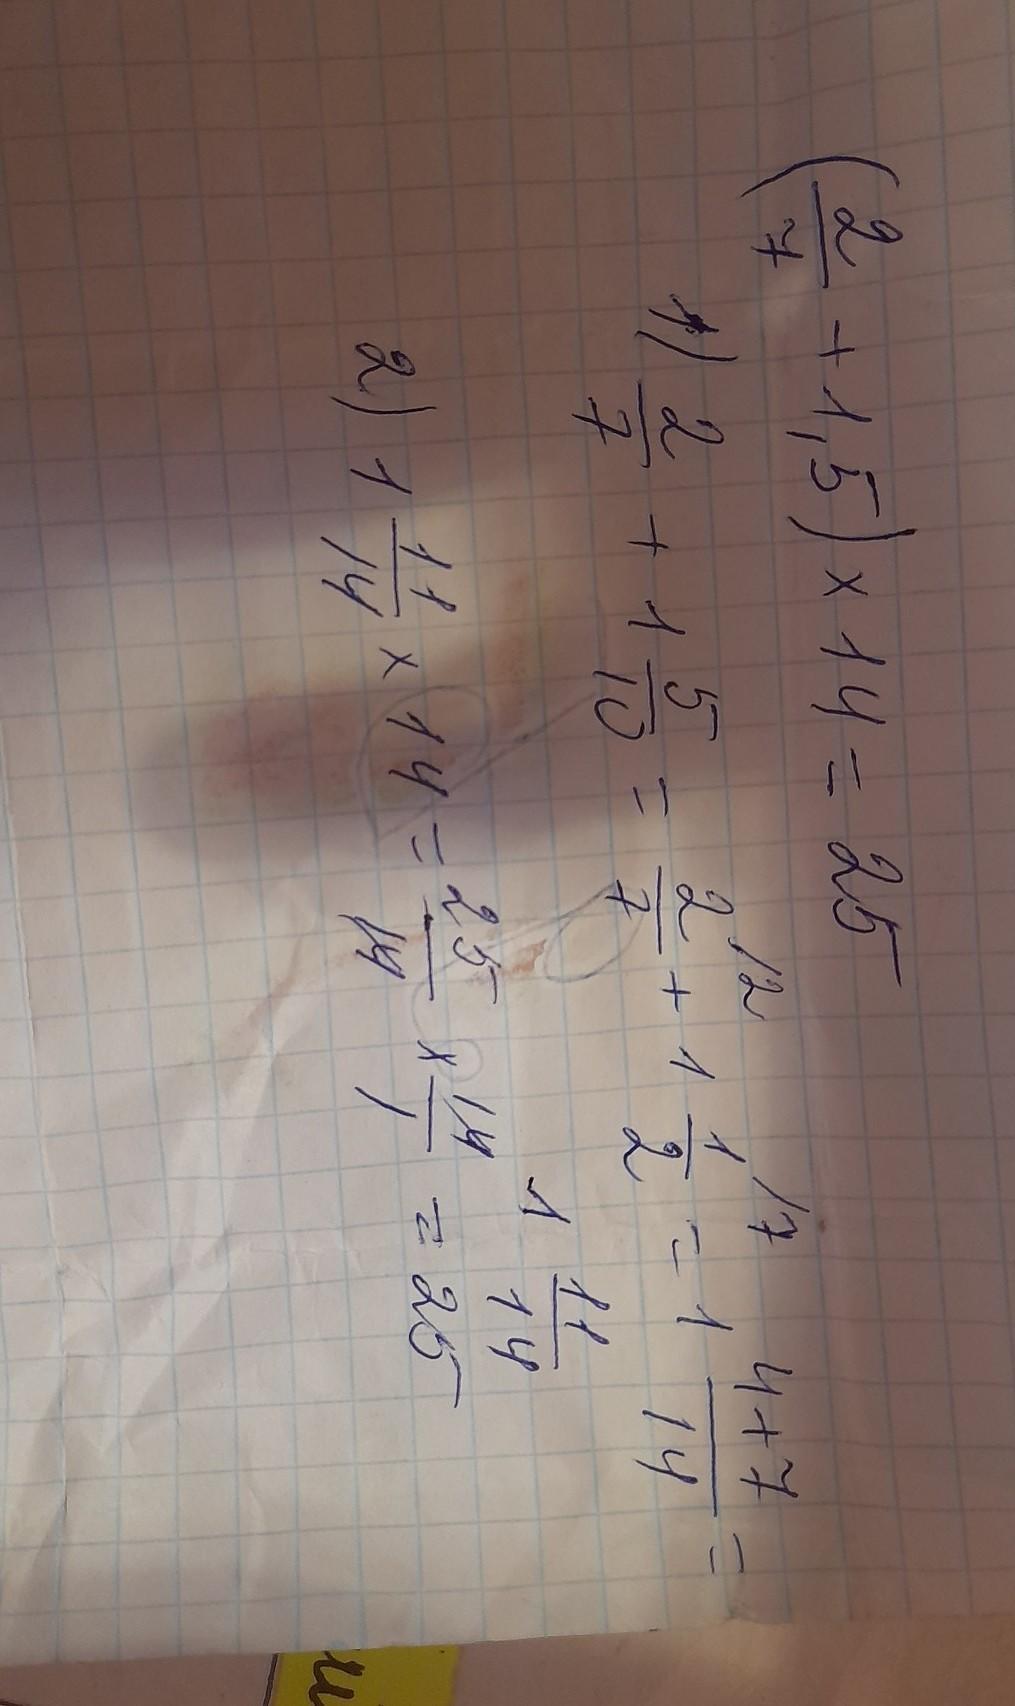 (2/7 + 1,5) × 14 = 25
1) 2/7 + 1 5/10 = 2/7 /2 + 1 1/2 /7 = 1 (4+7)/14 =
1 11/14
2) 1 11/14 × 14 = 25/14 × 14/1 = 25